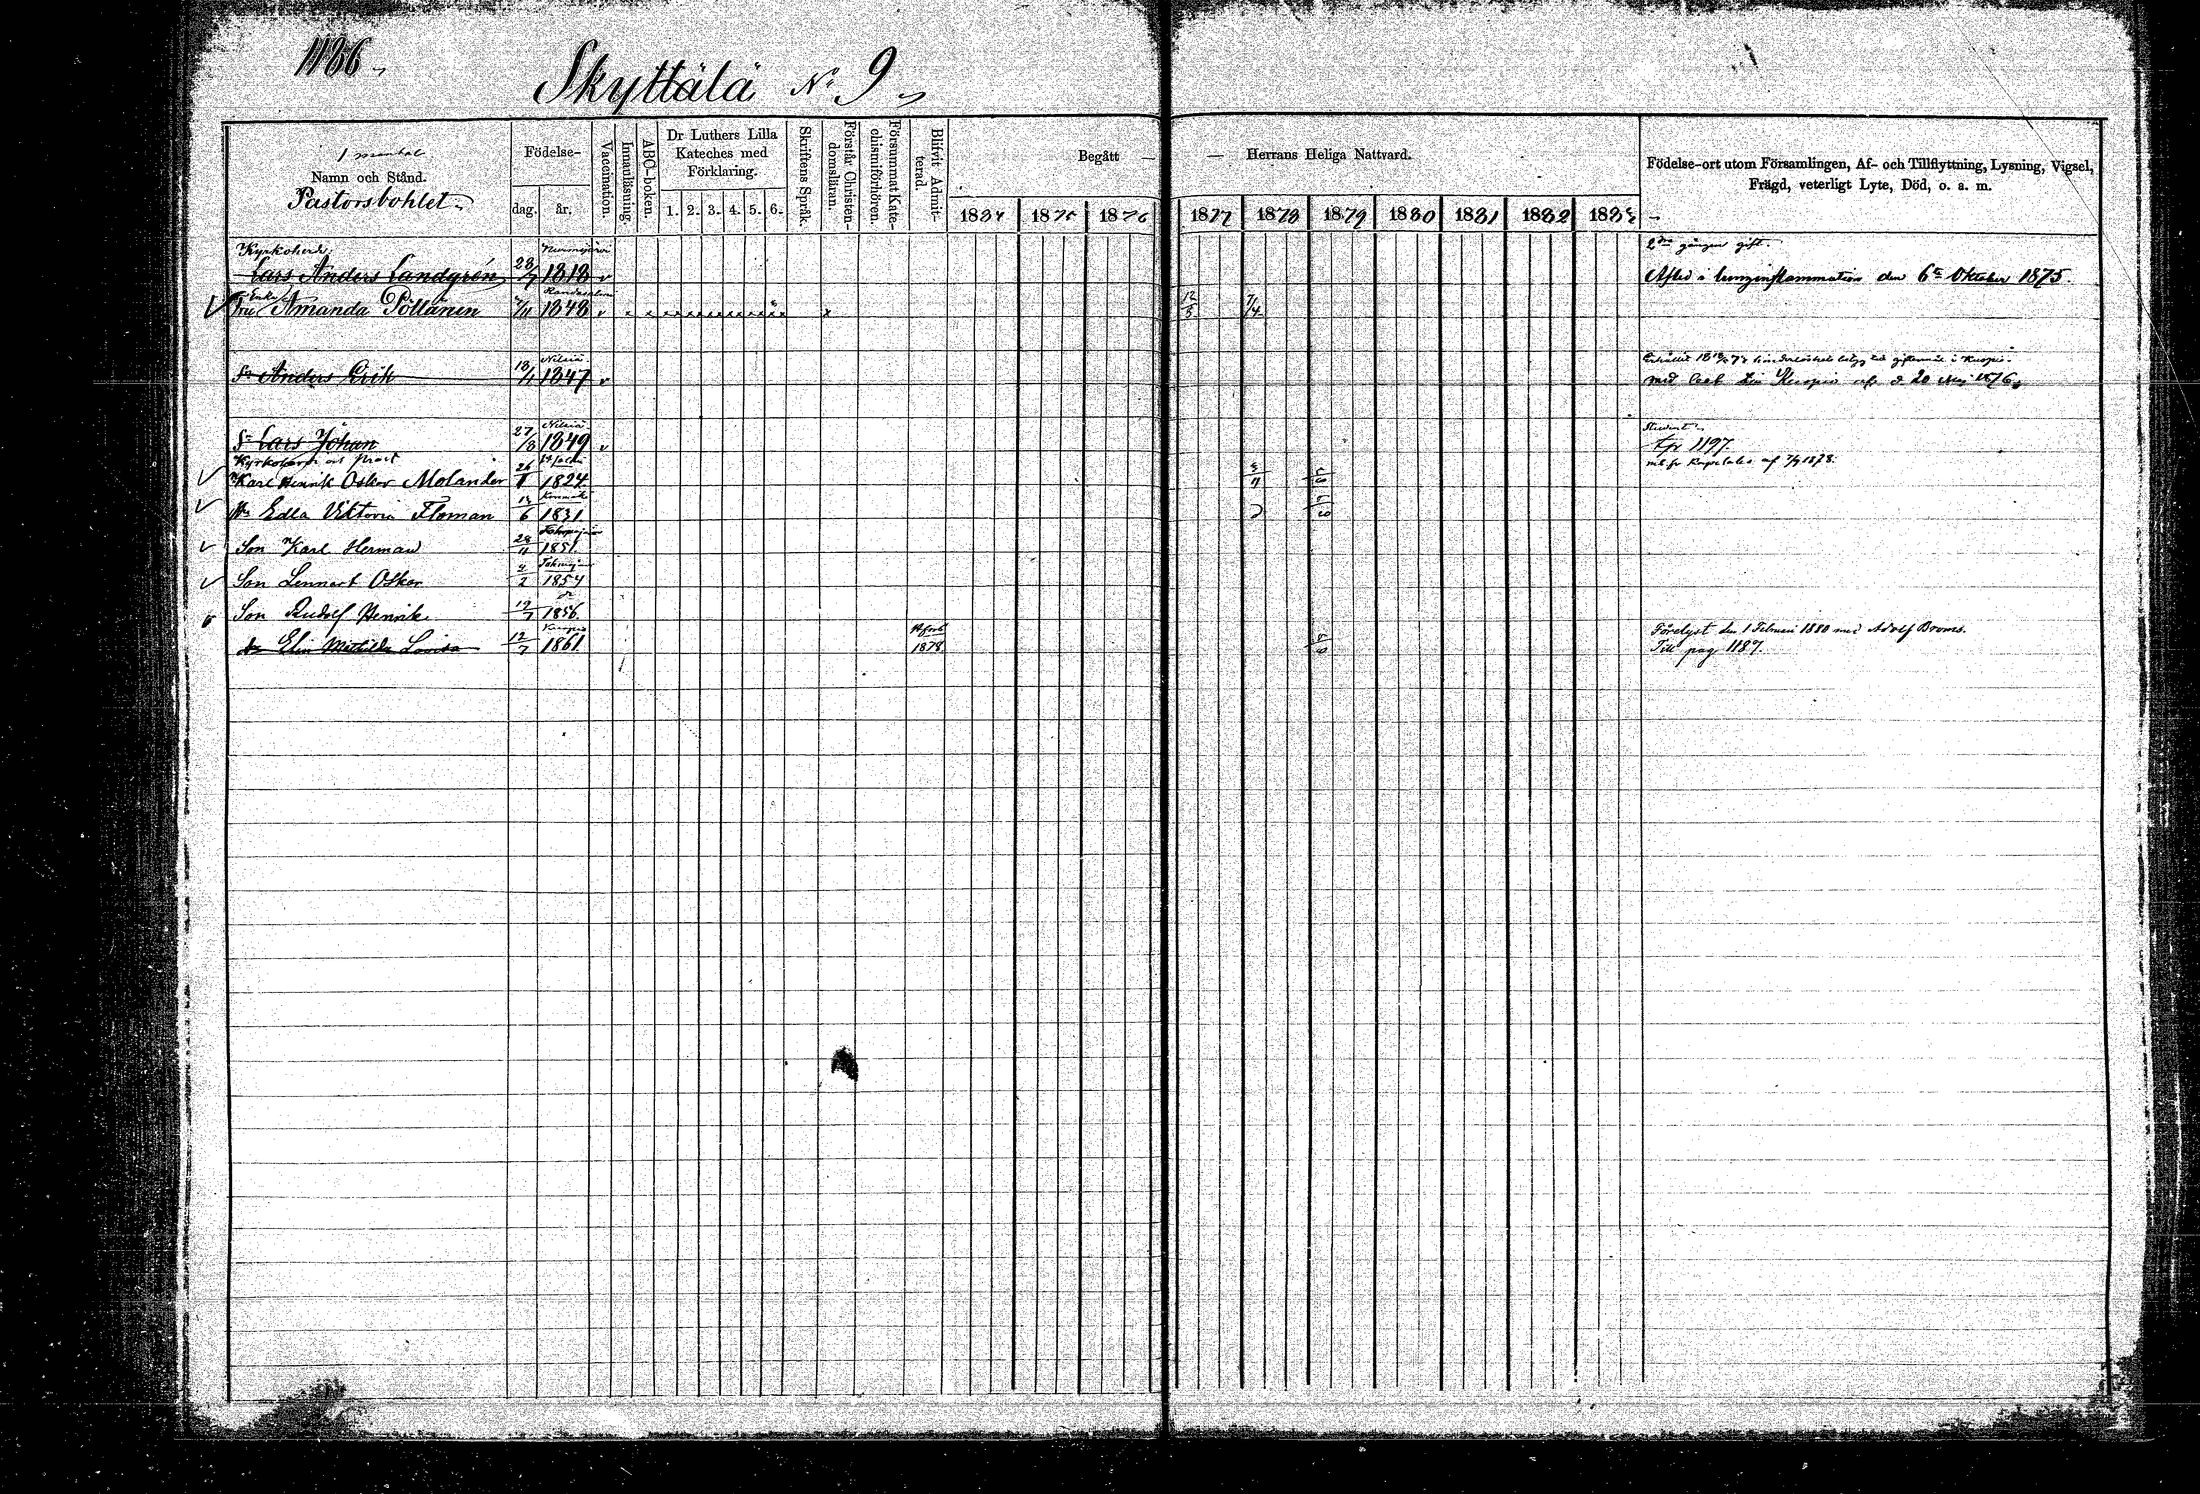 1186
Skyttälä No 9
1 mantal
Namn och Stånd.
Pastorsbohlet
Födelse-
dag. år.
Vaccination.
Innanläsning.
ABC-boken.
Dr Luthers Lilla
Kateches med
Förklaring.
1. 2. 3. 4. 5. 6.
Skriftens Språk.
Förstår Christen-
domsläran.
Försummat Kate-
chismiförhören.
Blifvit Admit-
terad.
Begått — — Herrans Heliga Nattvard.
1874 1875 1876 1877 1878 1879 1880 1881 1882 1883
Födelse-ort utom Församlingen, Af- och Tillflyttning, Lysning, Vigsel,
Frägd, veterligt Lyte, Död, o. a. m.
Kyrkoherde Nurmijärvi 2dra gången gift.
Lars Anders Landgrén 28/7 1818 v Afled i lunginflammation den 6te Oktober 1875.
Enke
Fru Amanda Pöllänen 1848 v 12/5 7/4
Nilsiä
Sn Anders Erik 18/11 1847 v med till Kuopio d 20 Maj 1876
Nilsiä Student
Sn Lars Johan 27/8 1849 v Tpr 1197.
Kyrkoherde och Prost
Karl Henrik Oskar Molander 26 1824
Edla Viktoria Floman 6 1831
Son Karl Herman 28/11 1851.
Son Lennart Oskar 2 1854
Son Rudolf Henrik 19/7 1856.
Kuopio Förelyst den 1 Februari 1880 med Adolf Broms.
dr Elin Mathilda Lovisa 12/7 1861 1878. Till pag 1187.